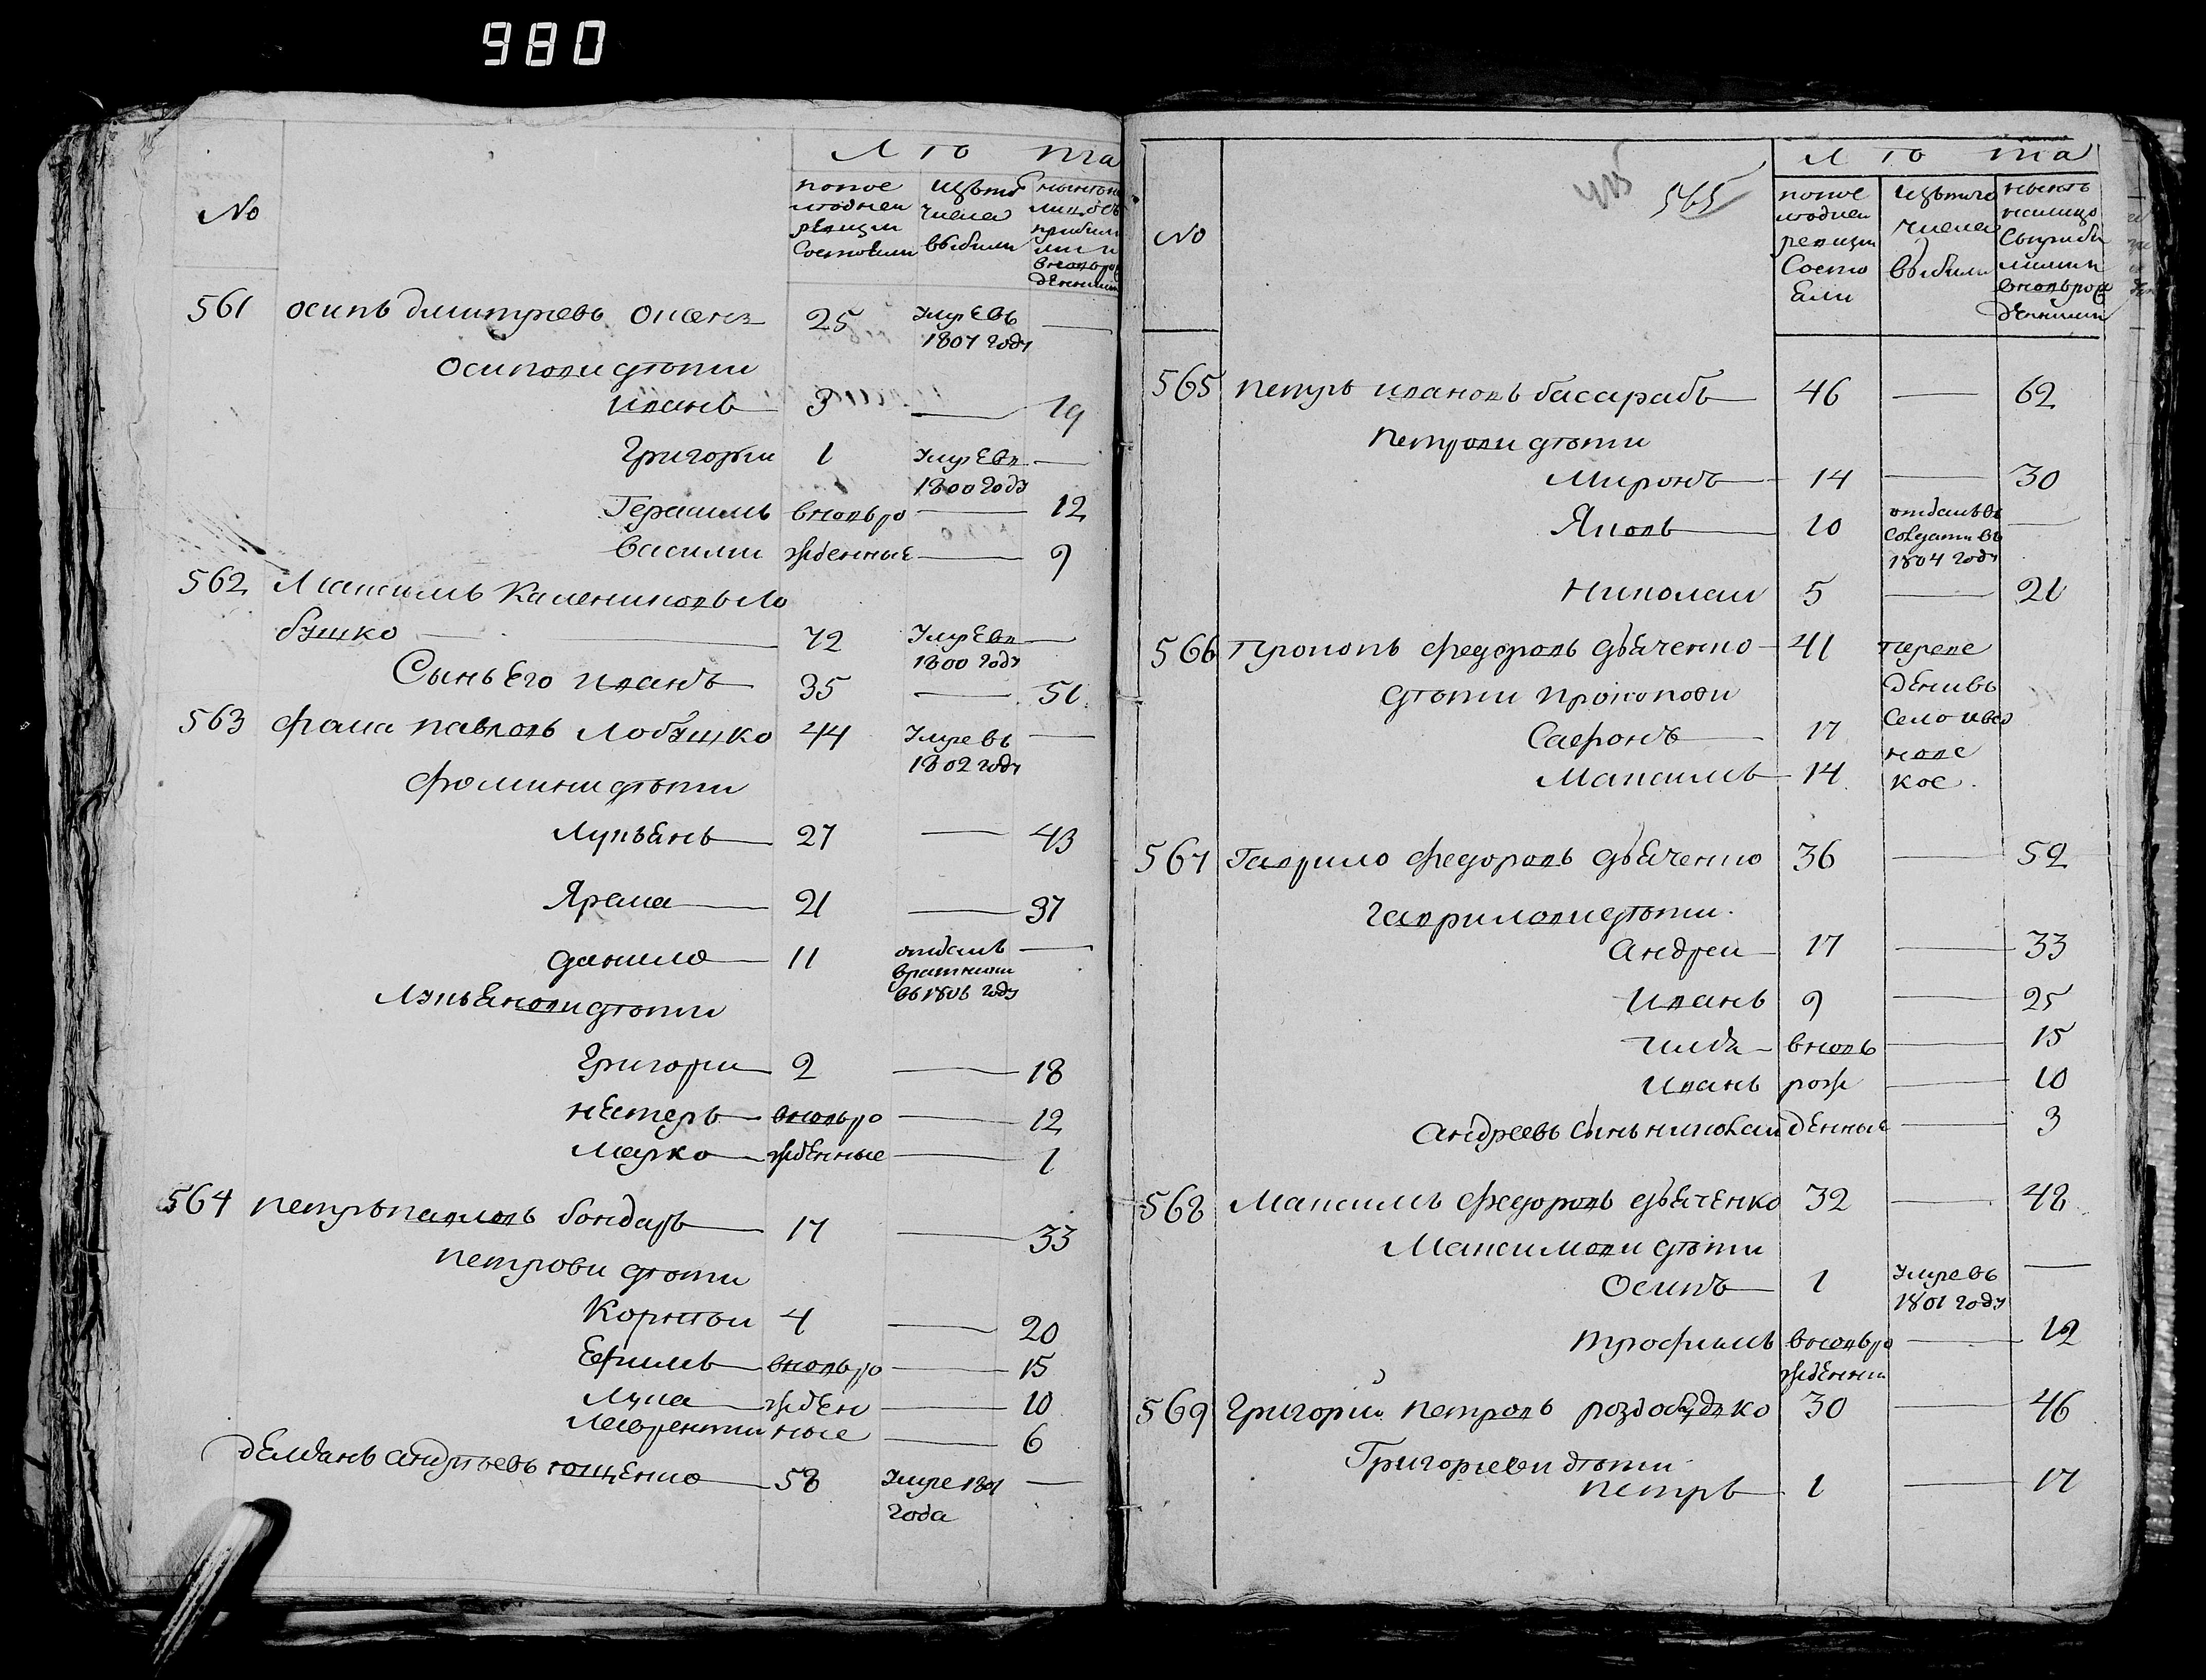 980
Лѣта
№
попос
ледней
ревизии
состояли
изъ того
числа
выбыли
561 осипъ дмитриевъ 25 умре въ —
1807 году
осиповы дѣти
иванъ 3 — 19
Григорий 1 умре въ —
1800 году
Герасимъ вновь ро — 12
василий жденные — 9
562 Максимъ Калениковъ Ло
бушко 72 умре въ —
1800 году
Сынъ Его иванъ 35 — 51
563 фома павловъ Лобушко 44 умре въ —
1802 году
фомины дѣти
Лукьянъ 27 — 43
Ярема 21 — 37
данило 11 отданъ —
вратники
въ 1806 году
Лукьяновы дѣти
Григори 2 — 18
нестеръ вновь ро — 12
марко жденные — 1
564 петръ павловъ бондарь 17 — 33
петрови дѣти
Корнѣй 4 — 20
Ефимъ вновь ро — 15
Лука жден — 10
Лаврентии ные — 6
демьянъ андрѣевъ ющенко 58 умре 1801 —
года
Лѣта
565
№
попос
ледней
ревизии
Состо
яли
изъ того
числа
выбыли
нынѣ
налицо
вновь рож
денными
565 петръ ивановъ басарабъ 46 — 62
петровы дѣти
Миронъ 14 — 30
Яковъ 10 отданъ въ —
солдати въ
1804 году
николай 5 — 21
566 прокопъ федоровъ дьяченко 41 переве
дѣти прокопови денивъ
Сафронъ 17 Село ивано
Максимъ 14 ковс
кое
567 Гаврило федоровъ дьяченко 36 — 52
гавриловы дѣти
андрей 17 — 33
иванъ 9 — 25
вновь — 15
иванъ рож — 10
андреевъ сынъ николай денные — 3
568 Максимъ федоровъ дьяченко 32 — 48
Максимовы дѣти
Осипъ 1 умре въ —
1801 году
трофимъ вновь ро — 12
жденни
569 Григорий петровъ 30 — 46
Григориеви дѣти
петръ 1 — 17